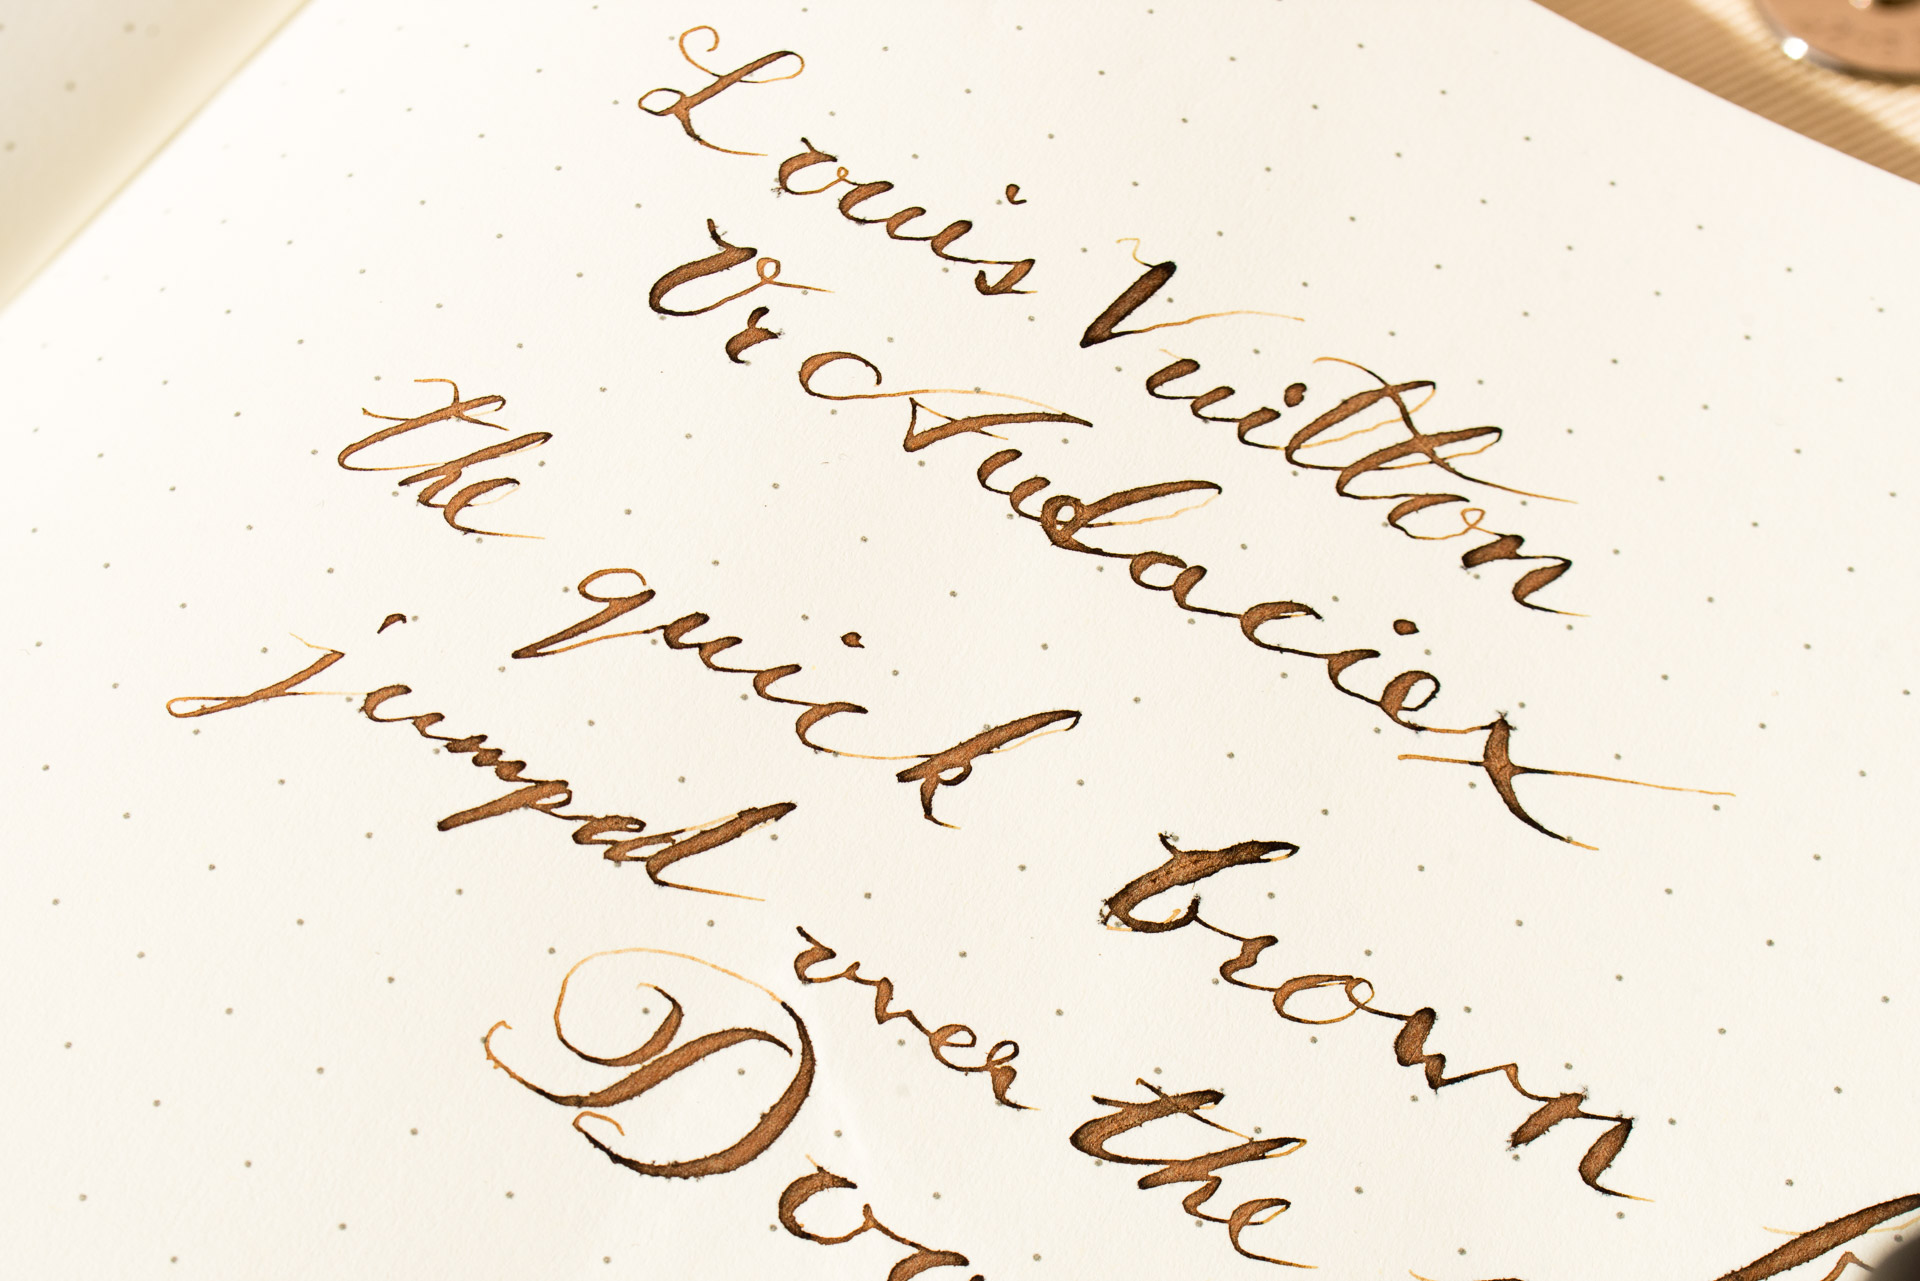 Louis Vuitton
Or Audaciex
the quick brown
jumped over the